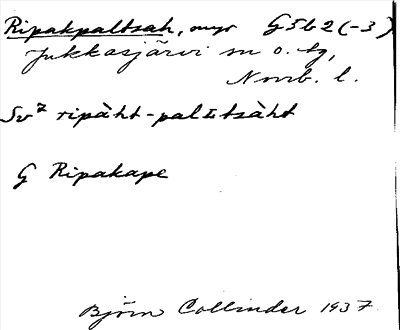 Ripakpaltsah, myr G5b2(-3)
Jukkasjärvi sn o. tg,
Norrb. l.
Sv² ripàht-palɪtsàht
G Ripakape
Björn Collinder 1937